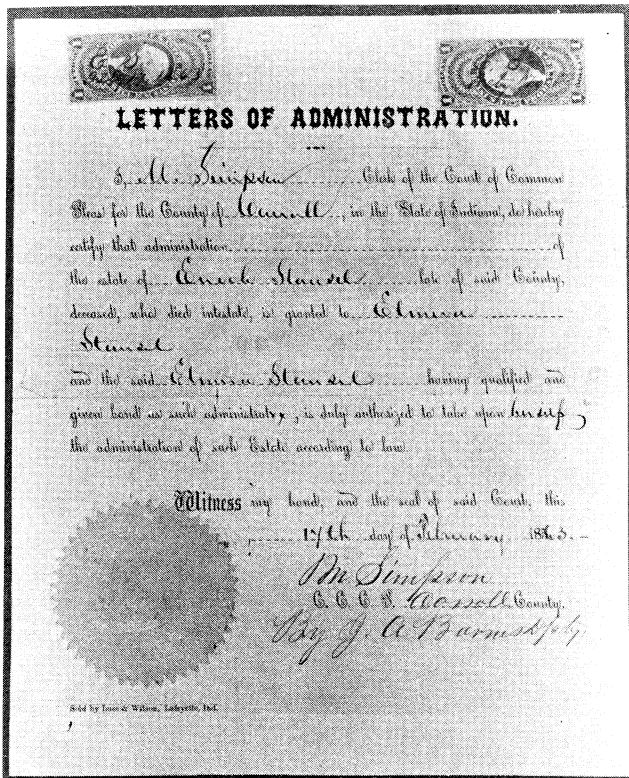 LETTERS OF ADMINISTRATION.
I, M. Simpson Clerk of the Court of Common
Pleas for the County of Carroll, in the State of Indiana, do hereby
certify that administration of
the estate of Enoch Stansel late of said County,
deceased, who died intestate, is granted to Elmira
Stansel
and the said Elmira Stansel having qualified and
given bond as such administratrx, is duly authorized to take upon herself
the administration of such Estate according to law.
Witness my hand, and the seal of said Court, this
17th day of February, 1863.
M Simpson
C. C. C. P. Carroll County.
By J. A. Dpty
Sold by & Wilson, Lafayette, Ind.